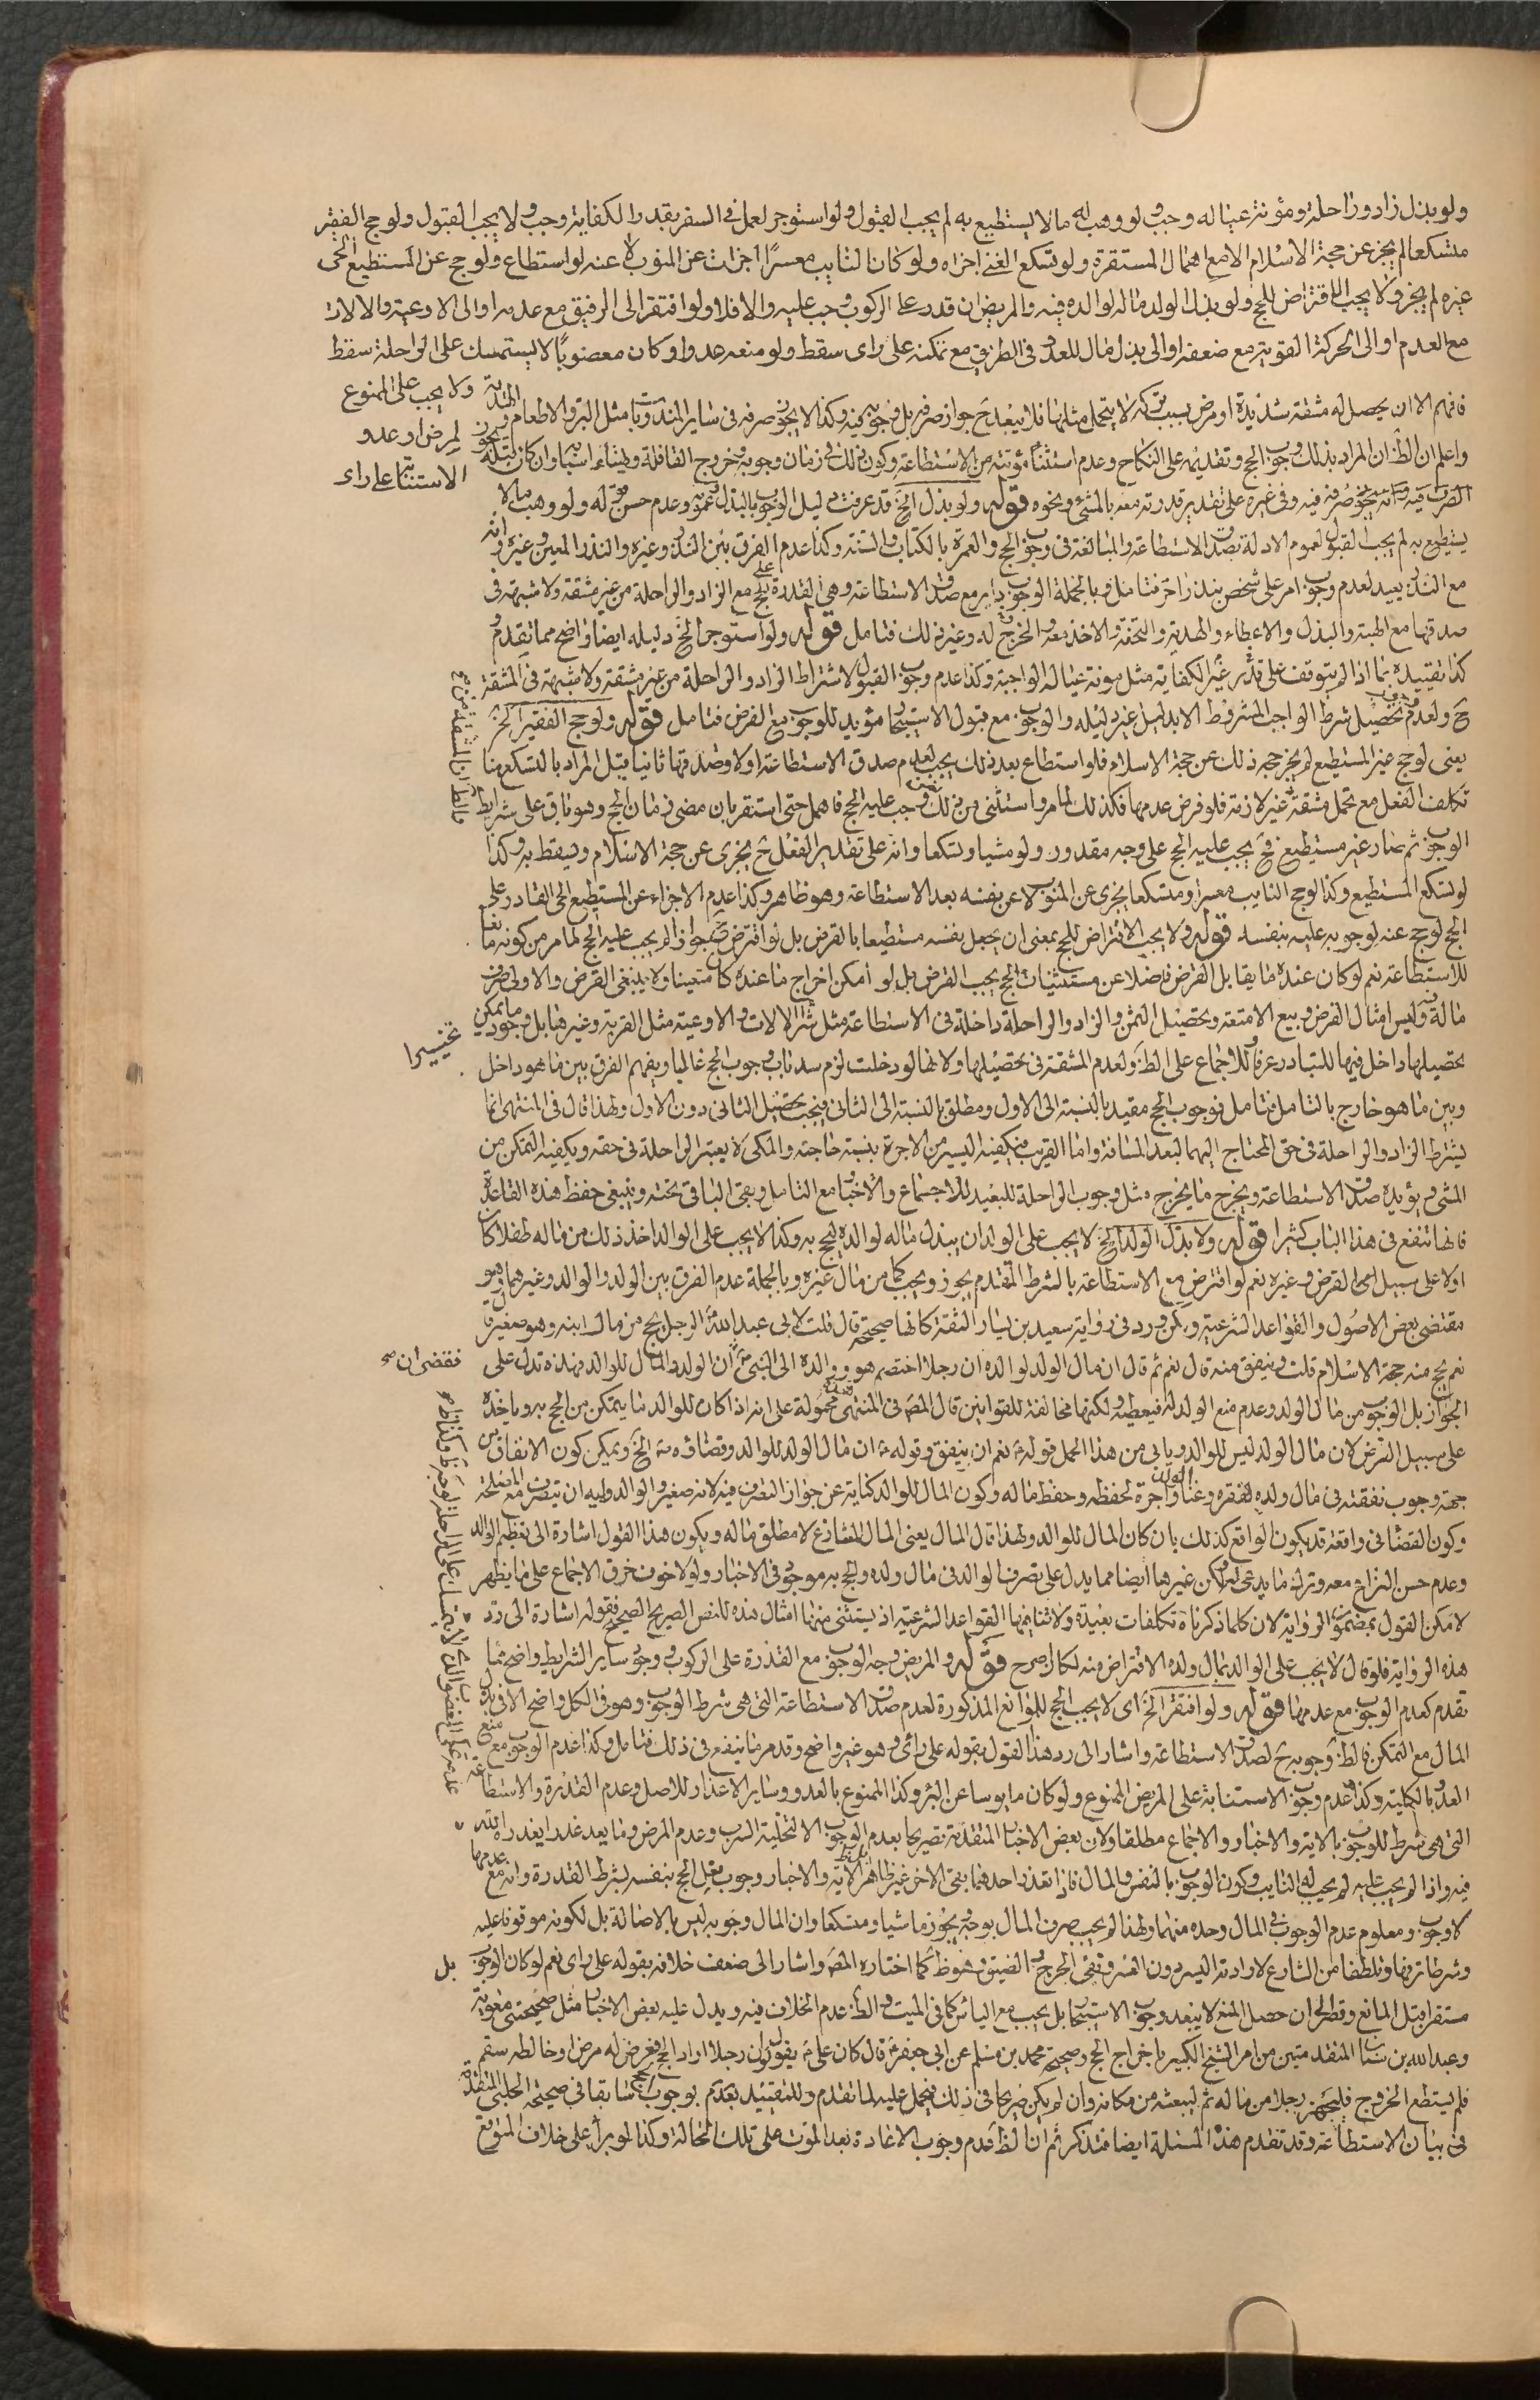 ولو بذل زاد وراحلة ومؤنة عياله وجب ولو وهب له ما لا يستطيع به لم يجب القبول ولو استوجر لعمل في السفر بقدر الكفاية وجب ولا يجب القبول ولو حج الفقير
متسكعا لم يجز عن حجة الاسلام الا مع اهمال المستقرة ولو تسكع الغني اجزاه ولو كان النايب معسرًا اجزات عن المنوب لا عنه لو استطاع ولو حج عن المستطيع الحي
غيره لم يجز ولا يجب الاقتراض للحج ولو بذل الولد ماله لوالده فيه والمريض ان قدر على الركوب وجب عليه والا فلا ولو افتقر الى الرفيق مع عدمه او الى الاوعية والالات
مع العدم او الى الحركة القوية مع ضعفه او الى بذل مال للعدو في الطريق مع تمكنه على راى سقط ولو منعه عدو او كان معضوبًا لا يستمسك على الراحلة سقط
ولا يجب على الممنوع
لمرض او عدو
الاستنابة على راى
فافهم الا ان يحصل له مشقة شديدة او مرض بسبب تركه لا يتحمل مثلها فلا يبعد ح جواز صرفه بل وجوبه فيه وكذا لا يجوز صرفه في ساير المندوبات مثل البر والاطعام
واعلم ان الظ ان المراد بذلك وجوب الحج وتقديمه على النكاح وعدم استثناء مؤنته من الاستطاعة وكون ذلك في زمان وجوبه وخروج القافلة وتهيئة اسبابه وان كان قبله
التصرف فيه وانه يجوز صرفه فيه وفي غيره على تقدير قدرته معه بالمشي ونحوه قوله ولو بذل الخ قد عرفت دليل الوجوب بالبذل وعمومه وعدم حسن له ولو وهب ما لا
يستطيع به لم يجب القبول لعموم الادلة بصدق الاستطاعة والمبالغة في وجوب الحج والعمرة بالكتاب والسنة وكذا عدم الفرق بين النذر وغيره والنذر المعين وغيره وانه
مع النذر بعيد لعدم وجوب امر على شخص بنذر اخر فتامل وبالجملة الوجوب داير مع صدق الاستطاعة وهي القدرة على الحج مع الزاد والراحلة من غير مشقة ولا شبهة في
صدقها مع الهبة والبذل والاعطاء والهدية والتحفة والاخذ معه والخرج له وغير ذلك فتامل قوله ولو استوجر الخ دليله ايضا واضح مما تقدم و
كذا تقييده بما اذا لم يتوقف على قدر غير الكفاية مثل مونة عياله الواجبة وكذا عدم وجوب القبول لاشتراط الزاد والراحلة من غير مشقة ولا شبهة في المشقة
ح ولعدم وجوب تحصيل شرط الواجب المشروط الا بدليل غير دليله والوجوب مع قبول الاستيجار مؤيد للوجوب مع الفرض فتامل قوله ولو حج الفقير الخ
يعنى لو حج غير المستطيع لم يجز حجه ذلك عن حجة الاسلام فلو استطاع بعد ذلك يجب لعدم صدق الاستطاعة اولا وصدقها ثانيا قيل المراد بالتسكع هنا
تكلف الفعل مع تحمل مشقة غير لازمة فلو فرض عدمها فكذلك لما مر واستثنى من ذلك من وجب عليه الحج فاهمل حتى استقر بان مضى زمان الحج وهو باق على شرايط
الوجوب ثم صار غير مستطيع فح يجب عليه الحج على وجه مقدور ولو مشيا وتسكعا وانه على تقدير الفعل ح يجزى عن حجة الاسلام ويسقط به وكذا
لو تسكع المستطيع وكذا لو حج النايب معسرا ومتسكعا يجزى عن المنوب لا عن نفسه بعد الاستطاعة وهو ظاهر وكذا عدم الاجزاء عن المستطيع الحى القادر على
الحج لو حج عنه لوجوبه عليه بنفسه قوله ولا يجب الاقتراض للحج بمعنى ان يجعل نفسه مستطيعا بالقرض بل لو اقترض مع جوازه لم يجب عليه الحج لما مر من كونه مانعا
للاستطاعة نعم لو كان عنده ما يقابل القرض فاضلا عن مستثنيات الحج يجب القرض بل لو امكن اخراج ما عنده كان متعينا ولا ينبغي القرض والاولى صرف
ماله فيه وليس امثال القرض وبيع الامتعة وتحصيل الثمن والزاد والراحلة داخلة في الاستطاعة مثل شراء الالات والاوعية مثل القربة وغيرها بل وجود ما يمكن
تحصيلها داخل فيها للتبادر عرفا وللاجماع على الظ ولعدم المشقة في تحصيلها ولانها لو دخلت لزم سد باب وجوب الحج غالبا ويفهم الفرق بين ما هو داخل
وبين ما هو خارج بالتامل فتامل فوجوب الحج مقيد بالنسبة الى الاول ومطلق بالنسبة الى الثاني فيجب تحصيل الثاني دون الاول ولهذا قال في المنتهى انما
يشترط الزاد والراحلة في حق المحتاج اليهما لبعد المسافة واما القريب فيكفيه اليسير من الاجرة بنسبة حاجته والمكى لا يعتبر الراحلة في حقه ويكفيه التمكن من
المشى ويؤيده صدق الاستطاعة ويخرج ما يخرج مثل وجوب الراحلة للبعيد للاجماع والاخبار مع التامل وبقى الباقى تحته وينبغى حفظ هذه القاعدة
فانها تنفع في هذا الباب كثيرا قوله ولا بذل الولد الخ لا يجب على الولد ان يبذل ماله لوالده ليحج به وكذا لا يجب على الوالد اخذ ذلك من ماله طفلا كان
او لا على سبيل القرض وغيره نعم لو اقترض مع الاستطاعة بالشرط المتقدم يجوز ويجب كما من مال غيره وبالجملة عدم الفرق بين الولد والوالد وغيرهما هو
مقتضى بعض الاصول والقواعد الشرعية ولكن ورد في رواية سعيد بن يسار الثقة كانها صحيحة قال قلت لابى عبد الله ع الرجل يحج من مال ابنه وهو صغير قال
نعم يحج منه حجة الاسلام قلت وينفق منه قال نعم ثم قال ان مال الولد لوالده ان رجلا اختصم هو ووالده الى النبي ص فقضى ان الولد والمال للوالد فهذه تدل على
الجواز بل الوجوب من مال الولد وعدم منع الولد له فيعطيه ولكنها مخالفة للقوانين قال المص في المنتهى محمولة على انه اذا كان للوالد ما يتمكن من الحج به وياخذه
على سبيل القرض لان مال الولد ليس للوالد ويابى من هذا الحمل قوله ع نعم ان ينفق وقوله ع ان مال الولد للوالد وقضاؤه ص الخ ويمكن كون الانفاق من
جهة وجوب نفقته في مال ولده لفقره وغنا الولد او اجرة لحفظه وحفظ ماله وكون المال للوالد كناية عن جواز التصرف فيه لانه صغير والوالد وليه ان يتصرف مع المصلحة
وكون القضا في واقعة قد يكون الواقع كذلك بان كان المال للوالد ولهذا قال المال يعنى المال المتنازع لا مطلق ماله ويكون هذا القول اشارة الى تعظيم الوالد
وعدم حسن النزاع معه وترك ما يدعى ولكن غيرها ايضا مما يدل على تصرف الوالد في مال ولده والحج به موجود في الاخبار ولولا خوف خرق الاجماع على ما يظهر
لامكن القول بمضمون الرواية لان كلما ذكرناه تكلفات بعيدة ولا تنافيها القواعد الشرعية اذ يستثنى منها امثال هذه للنص الصريح الصحيح فقوله اشارة الى رد
هذه الرواية فلو قال لا يجب على الوالد بمال ولده الاقتراض منه لكان اصرح قوله والمريض وجه الوجوب مع القدرة على الركوب وجود ساير الشرايط واضح مما
تقدم كعدم الوجوب مع عدمها قوله ولو افتقر الخ اى لا يجب الحج للموانع المذكورة لعدم صدق الاستطاعة التى هى شرط الوجوب وهو في الكل واضح الا في بذل
المال مع التمكن فالظ وجوبه ح لصدق الاستطاعة واشار الى رد هذا القول بقوله على رائى وهو غير واضح وقد مر ما ينفع في ذلك فتامل وكذا عدم الوجوب مع منع
العدو بالكلية وكذا عدم وجوب الاستنابة على المريض الممنوع ولو كان مايوسا عن البرؤ وكذا الممنوع بالعدو وساير الاعذار للاصل وعدم القدرة والاستطاعة
التى هى شرط للوجوب بالاية والاخبار والاجماع مطلقا ولان بعض الاخبار المتقدمة تصريحا بعدم الوجوب الا لتخلية السرب وعدم المرض وما يعد عذرا يعذره الله
فيه واذا لم يجب عليه لم يجب له النايب وكون الوجوب بالنفس والمال فاذا تعذر احدهما بقى الاخر غير ظاهر لان ظاهر الاية والاخبار وجوب فعل الحج بنفسه بشرط القدرة وانه مع عدمها
لا وجوب ومعلوم عدم الوجوب في المال وحده منهما ولهذا لم يجب صرف المال بوجه يجوز ماشيا ومتسكعا وان المال وجوبه ليس بالاصالة بل لكونه موقوفا عليه
وشرطا ترفها وتلطفا من الشارع لارادته اليسر دون العسر ونفى الحرج والضيق وهو ظ كما اختاره المص واشار الى ضعف خلافه بقوله على راى نعم لو كان الوجوب
مستقرا قبل المانع وقطع الى ان حصل المنع لا يبعد وجوب الاستيجار بل يجب مع الياس كما في الميت والظ عدم الخلاف فيه ويدل عليه بعض الاخبار مثل صحيحتى معوية
وعبد الله بن سنان المتقدمتين من امر الشيخ الكبير باخراج الحج وصحيحة محمد بن مسلم عن ابى جعفر ع قال كان على ع يقول لو ان رجلا اراد الحج فعرض له مرض او خالطه سقم
فلم يستطع الخروج فليجهز رجلا من ماله ثم ليبعثه من مكانه وان لم يكن صريحا في ذلك فيحمل عليه لما تقدم وللتقييد بعدم بوجوب الحج سابقا في صحيحة الحلبى المتقدمة
في بيان الاستطاعة وقد تقدم هذه المسئلة ايضا فتذكر ثم ان الظ عدم وجوب الاعادة بعد الموت على تلك الحالة وكذا لو برأ على خلاف المتوقع
بل